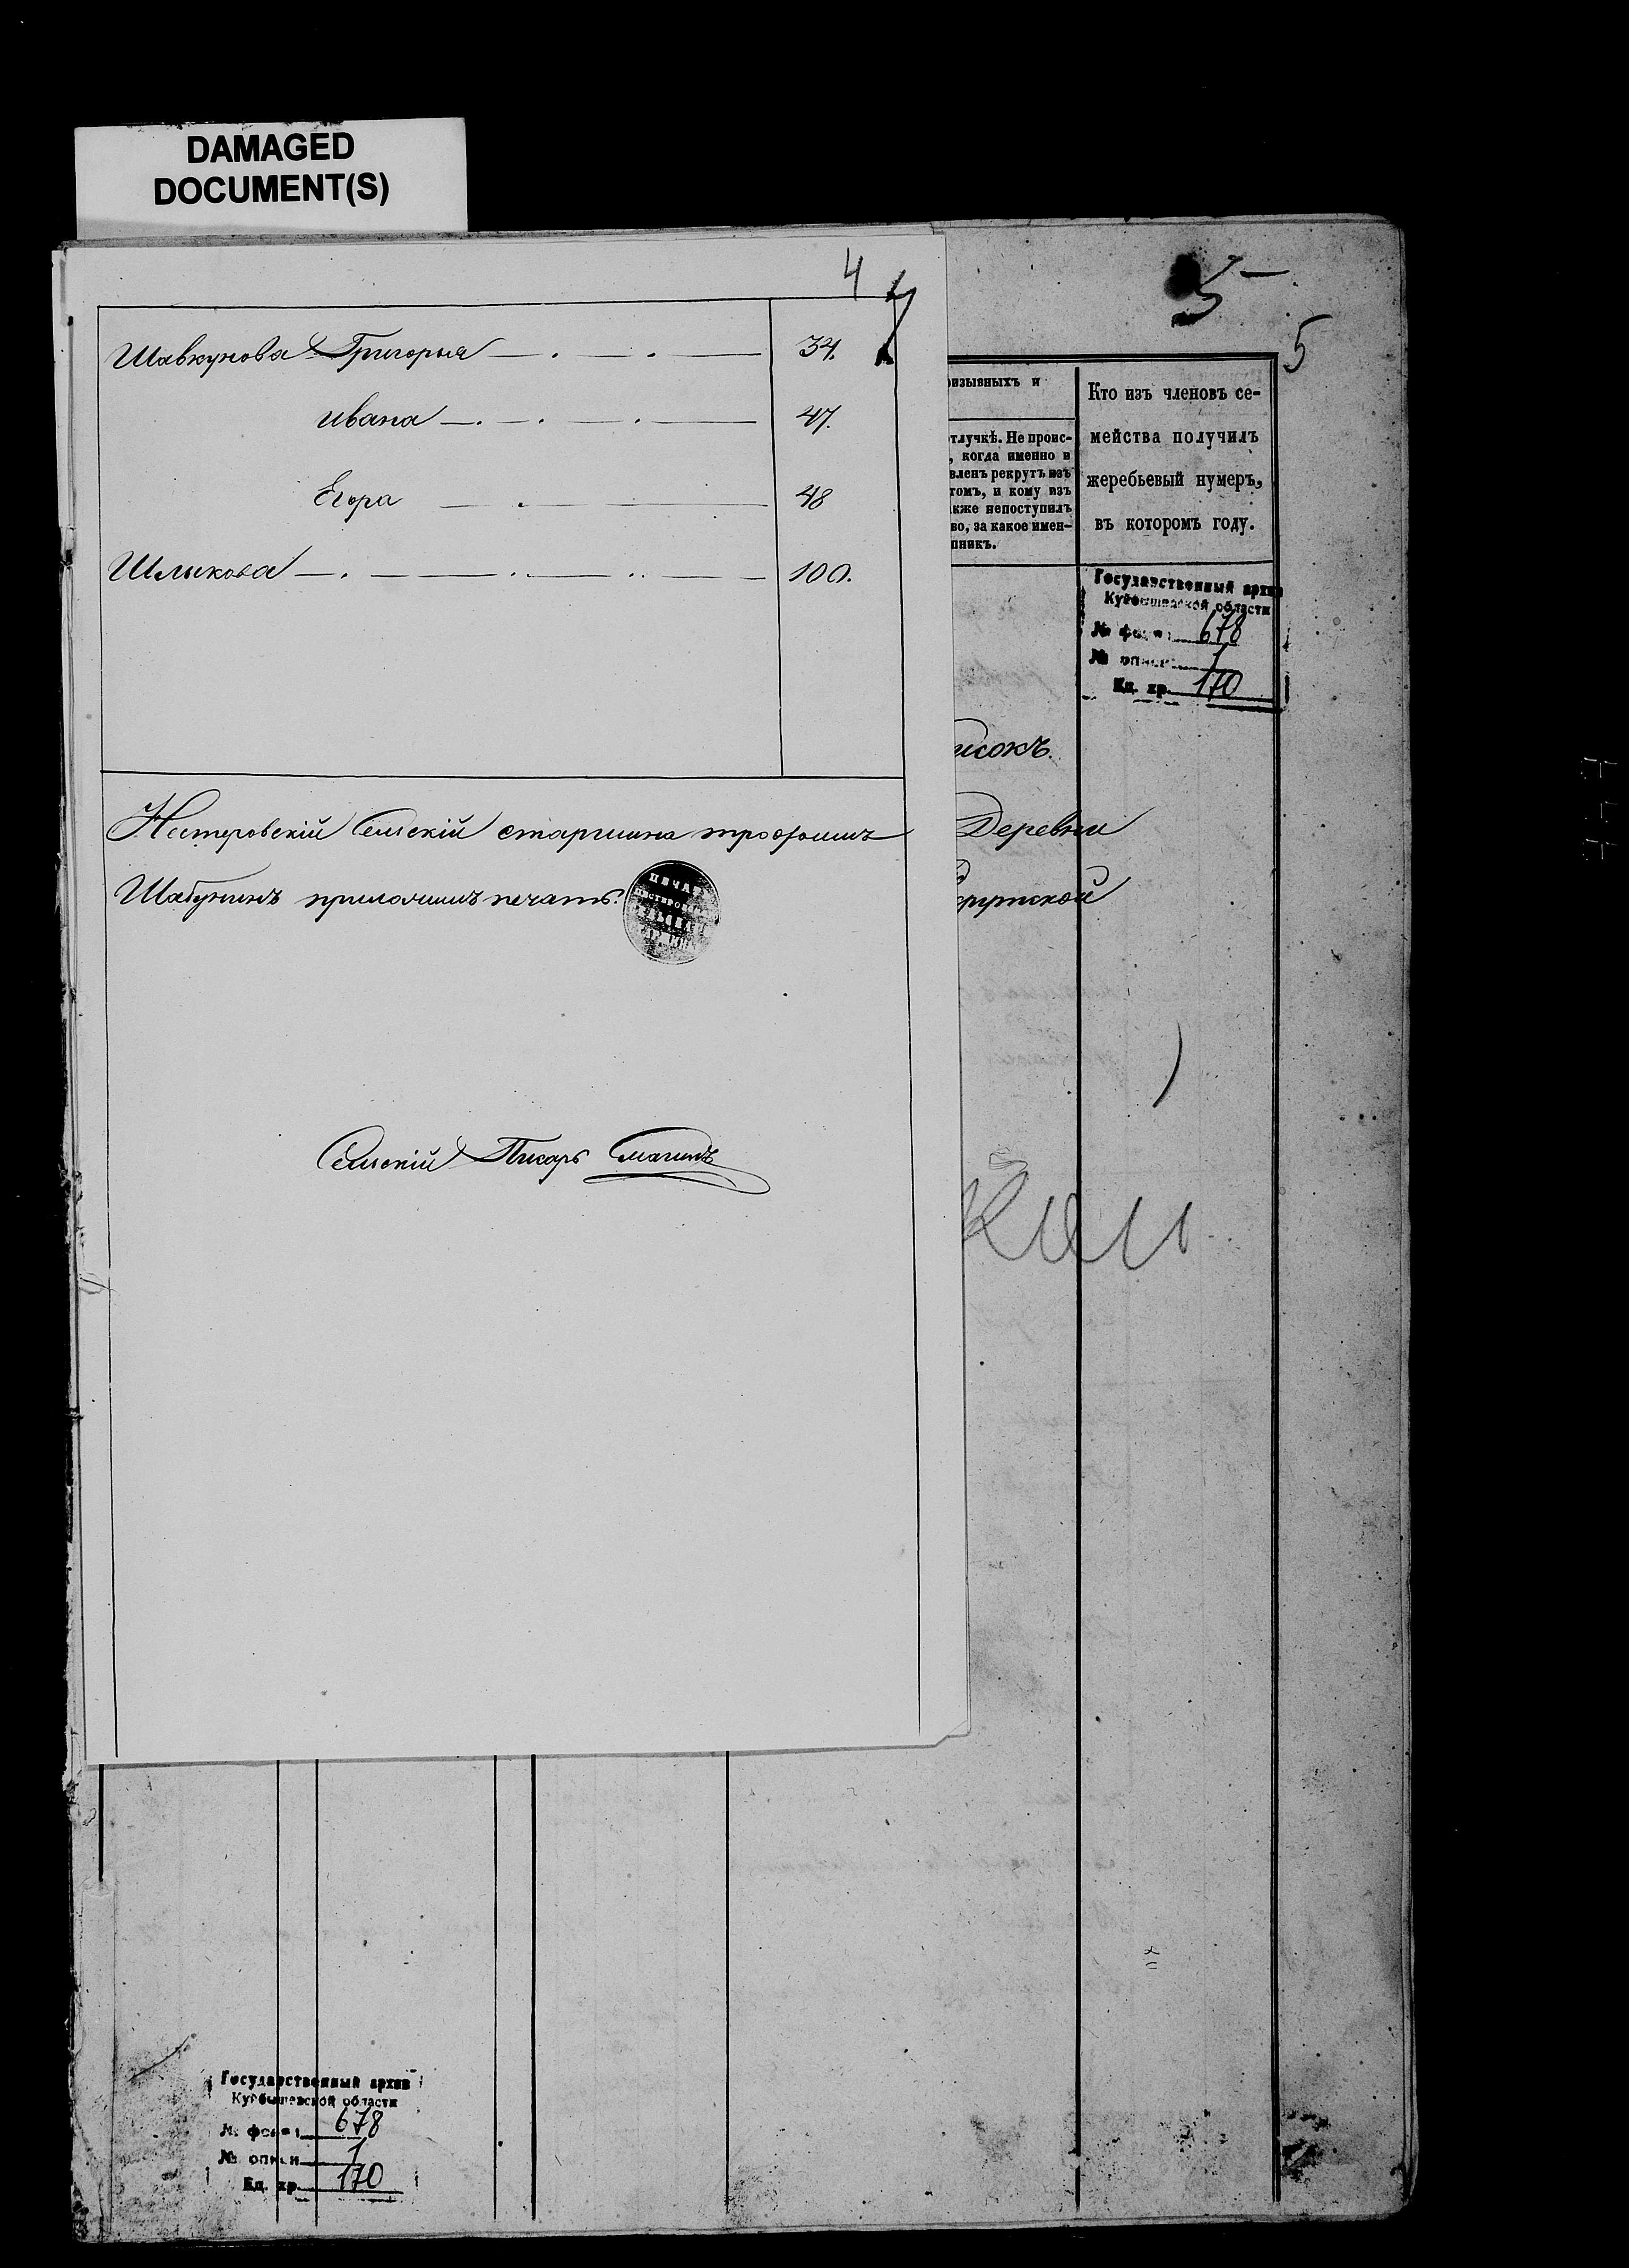 DAMAGED
DOCUMENT(S)
4
Шавкунова Григорья 34.
ивана 47.
Егора 48
Шлыкова 100.
Нестеровскій Сельскій старшина трофимъ
Шабунинъ приложилъ печать.
Сельскій Писарь Смагинъ
5
5
ризывныхъ и
тлучкѣ. Не проис-
, когда именно и
вленъ рекрутъ изъ
томъ, и кому изъ
кже непоступилъ
во, за какое имен-
пникъ.
Кто изъ членовъ се-
мейства получилъ
жеребьевый нумеръ,
въ которомъ году.
Государственный архив
Куйбышевской области
№ фонда 678
№ описи 1
Ед. хр. 170
исокъ.
Деревни
крутской
Государственный архив
Куйбышевской области
№ фонда 678
№ описи 1
Ед. хр. 170